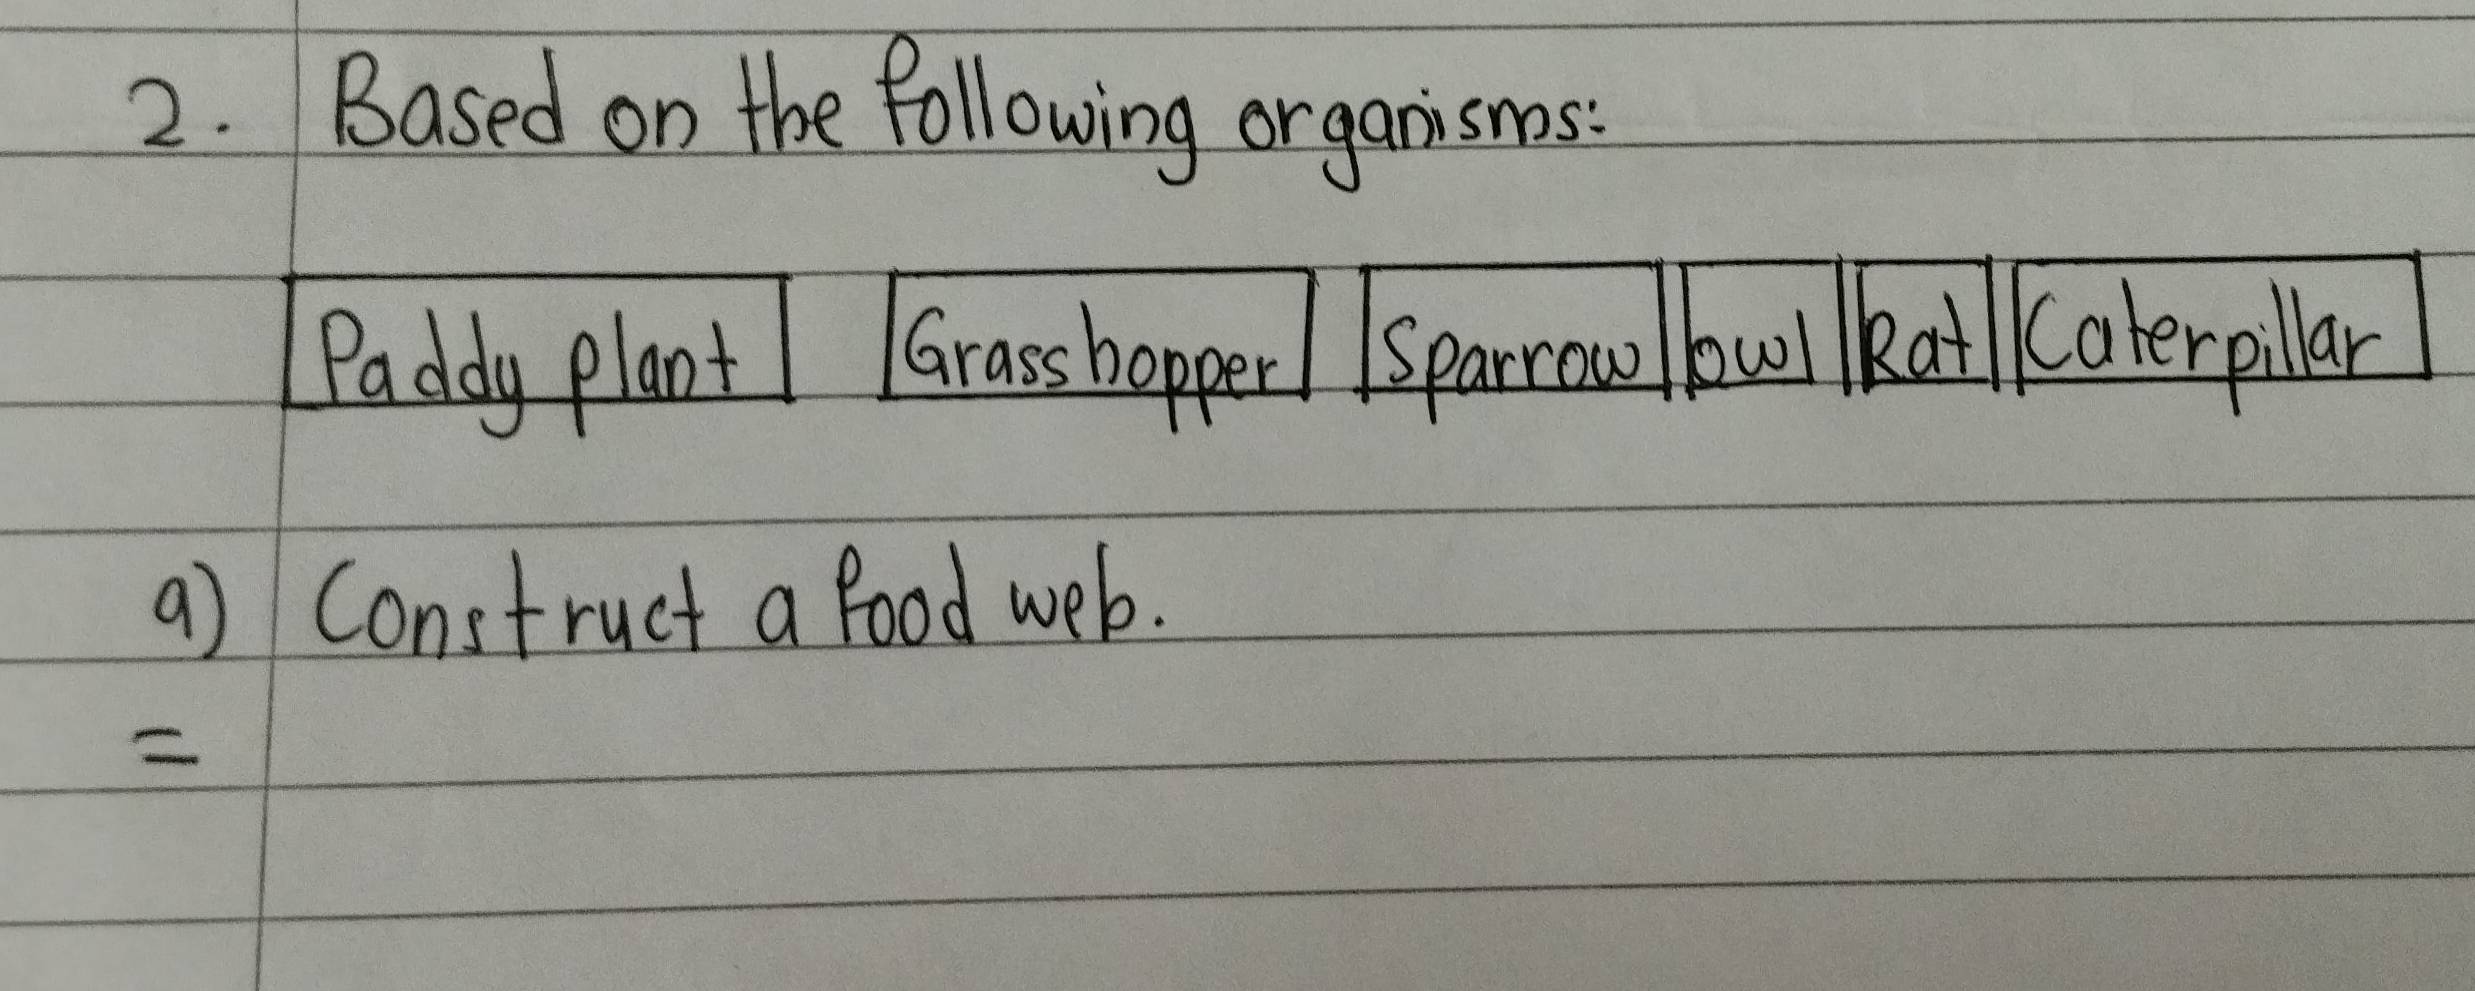 2. Based on the following organisms:
Paddy plant Grasshopper Sparrow owl Rat Caterpillar
a) Construct a food web.
=